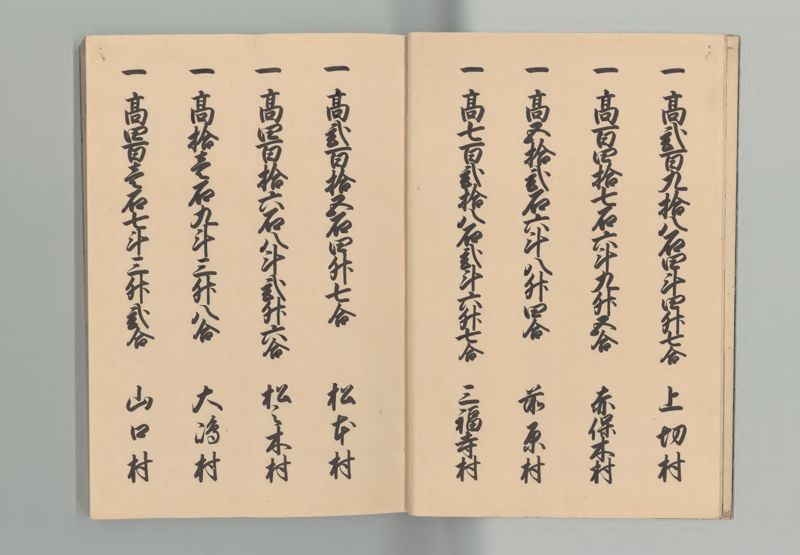 一 高貳百九拾八石四斗四升七合 上切村
一 高百四拾七石六斗九升五合 赤保木村
一 高五拾貳石六斗八升四合 前原村
一 高七百貳拾八石貳斗六升七合 三福寺村
一 高貳百拾五石四升七合 松本村
一 高四百拾六石八斗貳升六合 松之木村
一 高拾壱石九斗三升八合 大嶋村
一 高四百壱石七斗三升貳合 山口村